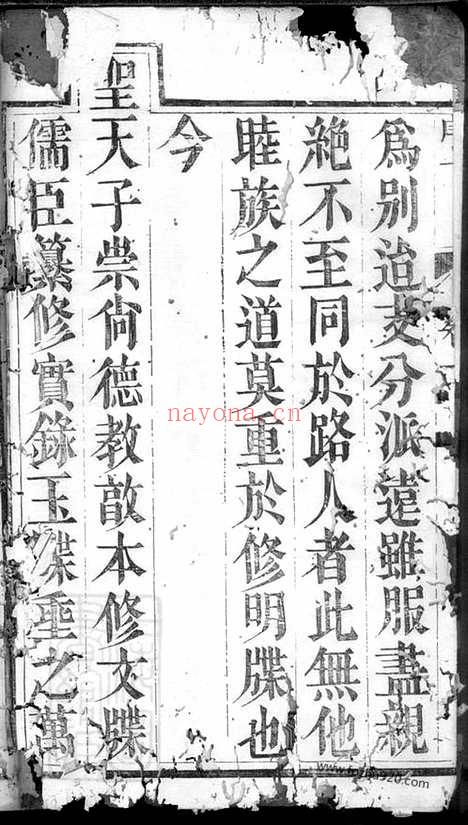 為別迨支分派遠雖服盡親
絶不至同於路人者此無他
睦族之道莫重於修明牒也
今
聖天子崇尙德教敦本修文牒
儒臣纂修實錄玉牒垂之萬
nayona.cn